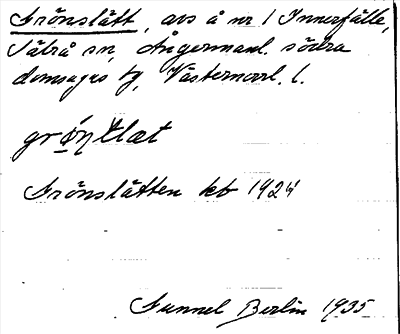 Grönslätt, avs å nr 1 Innerfälle,
Sätrå sn, Ångermanl. södra
domsagas tg, Västernorrl. l.
grǿnʈlæt
Grönslätten kb 1924
Gunnel Berlin 1935